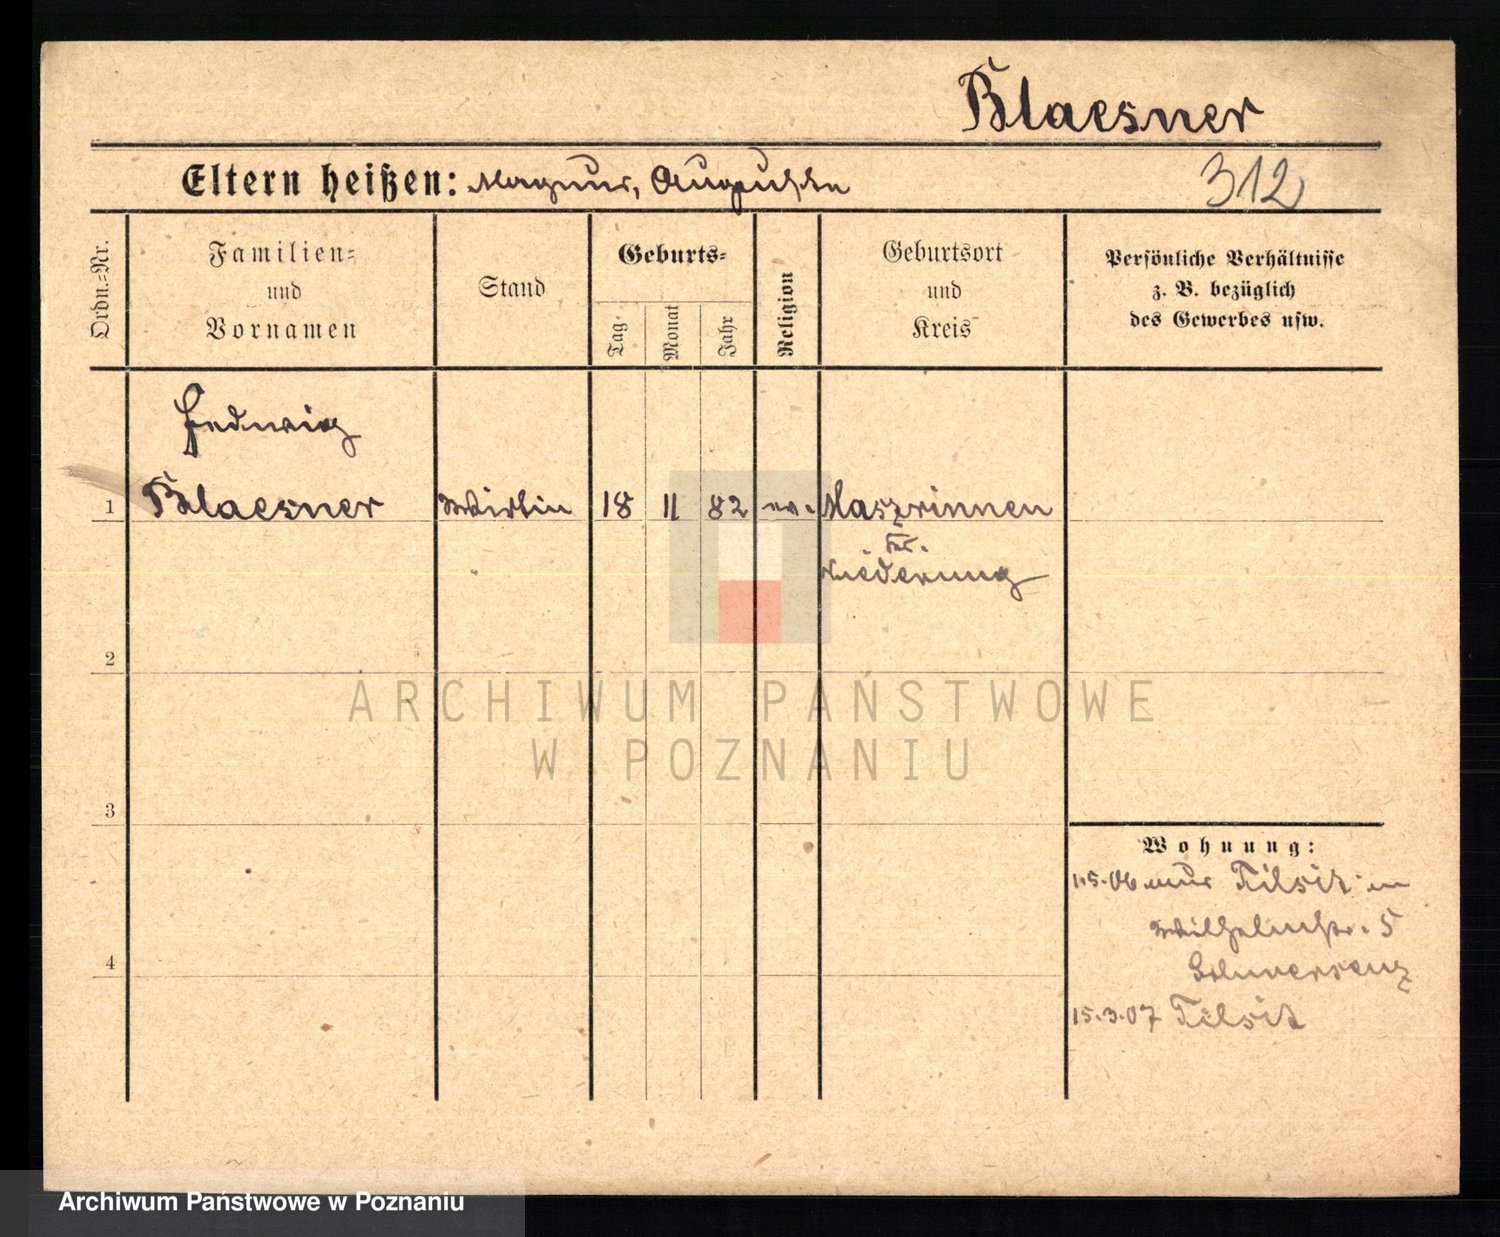 Blaesner
Eltern heißen: Magnus, Auguste
312
Ordn.-Nr.
Familien-
und
Vornamen
Stand
Geburts-
Tag
Monat
Jahr
Religion
Geburtsort
und
Kreis
Persönliche Verhältnisse
z. B. bezüglich
des Gewerbes usw.
Hedwig
1 Blaesner Wirtin 18 11 82 ev. Maszrinnen
Kr.
Niederung
2
3
4
Wohnung:
1.5.06 aus Tilsit in
Wilhelmstr. 5
Schwersenz
15.3.07 Tilsit
ARCHIWUM PAŃSTWOWE
W POZNANIU
Archiwum Państwowe w Poznaniu